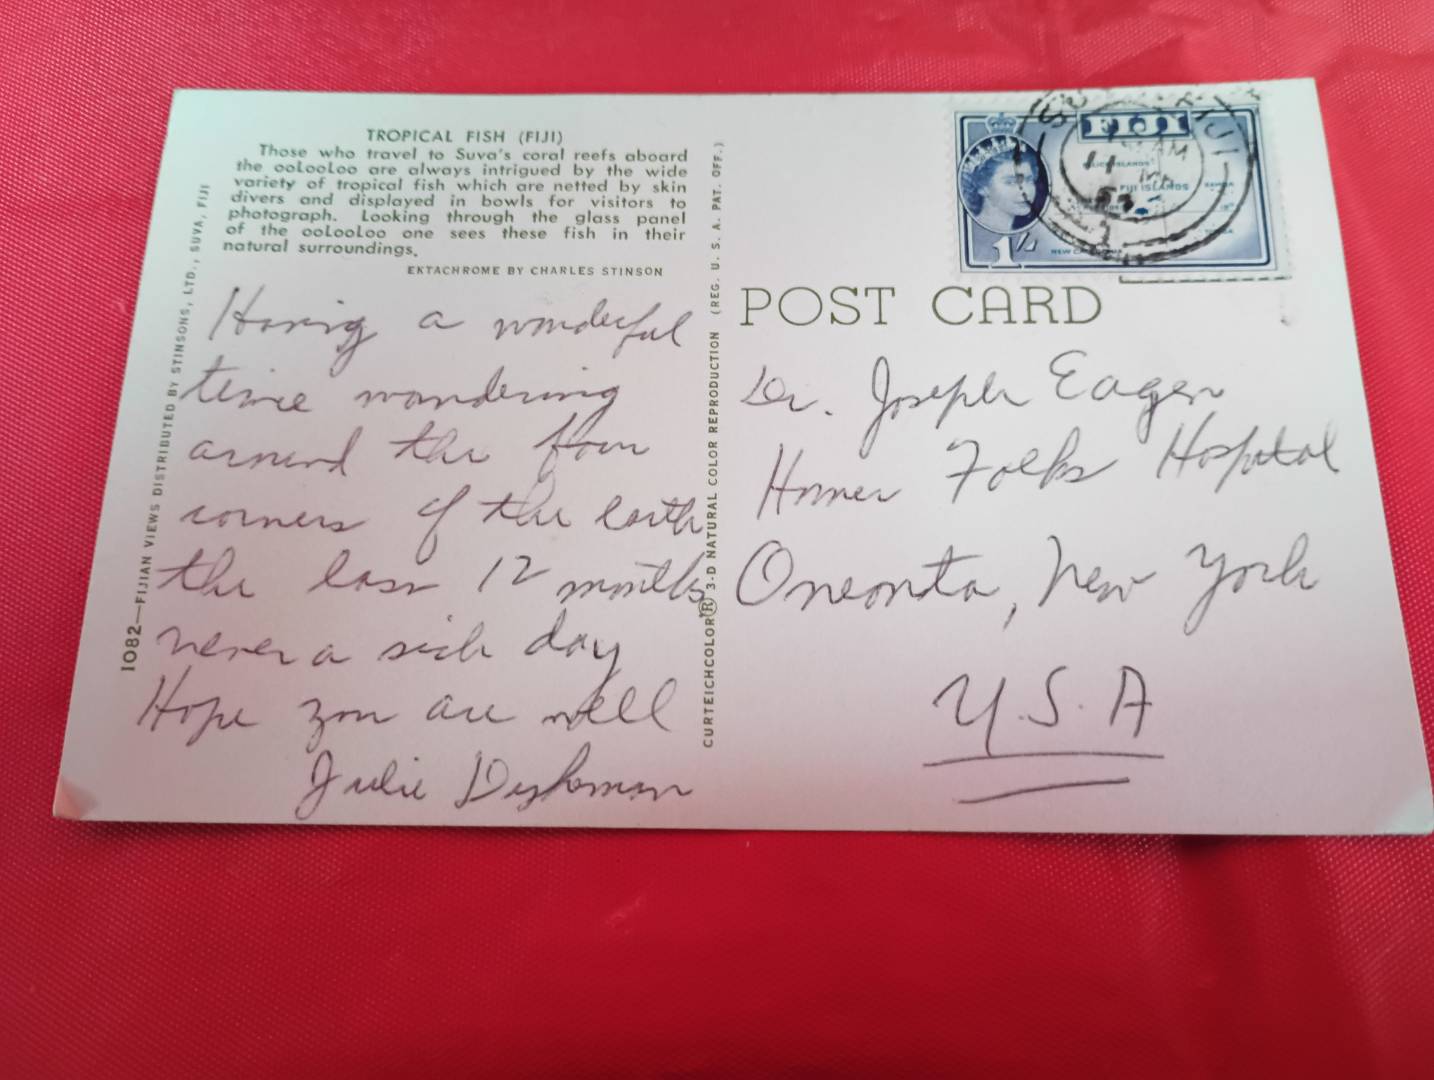 TROPICAL FISH (FIJI)
Those who travel to Suva's coral reefs aboard
the ooLooLoo are always intrigued by the wide
variety of tropical fish which are netted by skin
divers and displayed in bowls for visitors to
photograph. Looking through the glass panel
of the ooLooLoo one sees these fish in their
natural surroundings.
EKTACHROME BY CHARLES STINSON
1082—FIJIAN VIEWS DISTRIBUTED BY STINSONS, LTD., SUVA, FIJI
Having a wonderful
time wandering
around the four
corners of the earth
the last 12 months
never a sick day
Hope you are well
Julie Dykeman
CURTEICHCOLOR® 3-D NATURAL COLOR REPRODUCTION (REG. U. S. A. PAT. OFF.)
FIJI
FIJI ISLANDS
1/-
POST CARD
Dr. Joseph Eagen
Homer Folks Hospital
Oneonta, New York
U.S.A